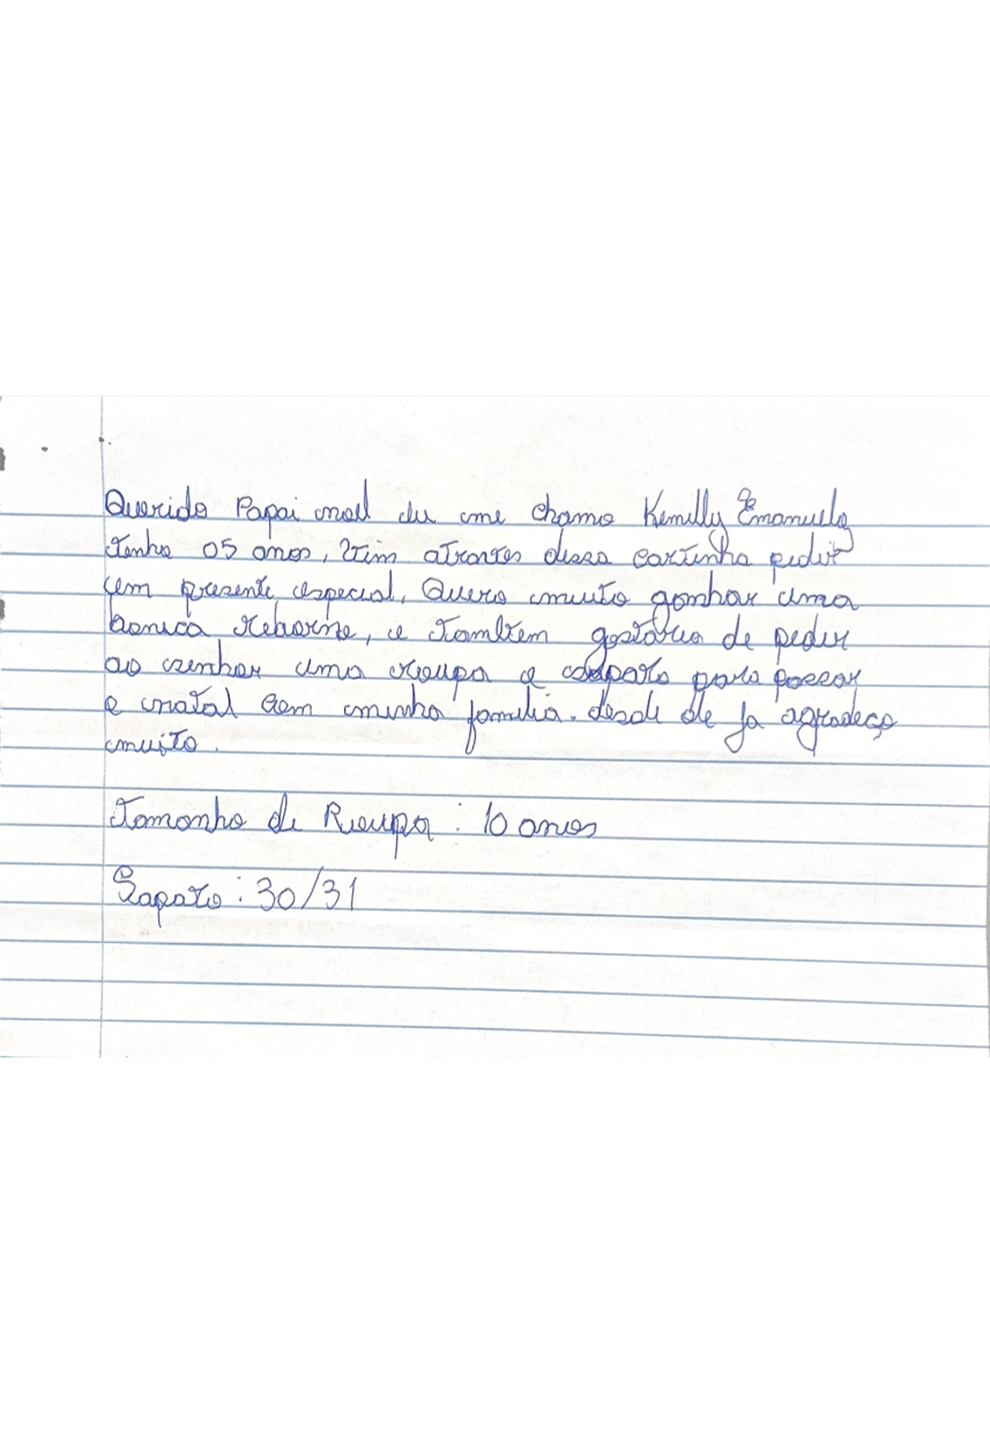 Querido Papai noel eu me chamo Kemilly Emanuely
tenho 05 anos, vim atraves dessa cartinha pedir
um presente especial. Quero muito ganhar uma
boneca Reborne, e tambem gostaria de pedir
ao senhor uma roupa e sapato para passar
o natal com minha familia. desde de ja agradeço
muito.
Tamanho de Roupa : 10 anos
Sapato : 30/31